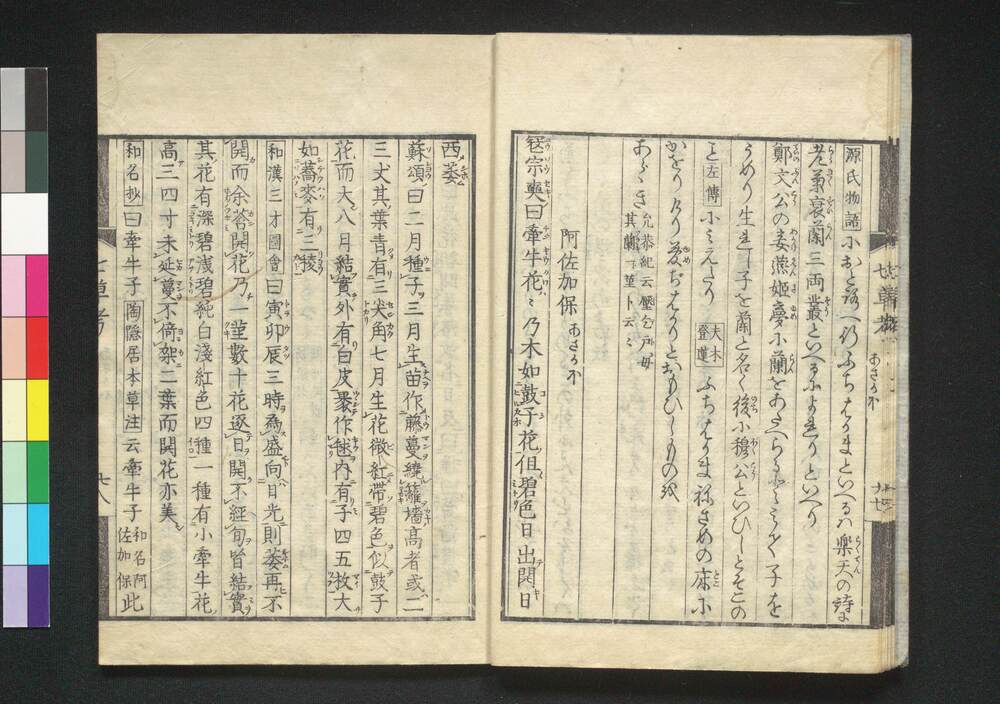 源氏物語におとろへ行ふちはかまといへるハ楽天の詩に
老菊衰蘭三両叢といへるによれりといへり
鄭文公の妾燕姫夢に蘭をあたへらるとみて子を
うめり生れし子を蘭と名く後に穆公といひしとそこの
と左傳にみえたり 夫木 登蓮 ふちはかまねさめの床に
かをりけり夢ぢはかりとおもひしものを
あらゝき 允恭紀云壓乞戸母其蘭一莖卜云〻
阿佐加保 あさかほ
寇宗奭曰牽牛花〻乃木如鼓子花但碧色日出開日
西萎
蘇頌曰二月種子三月生苗作藤蔓繞籬墻高者或二
三丈其葉青有三尖角七月生花微紅帶碧色似鼓子
花而大八月結實外有白皮裹作毬内有子四五枚大
如蕎麥有三稜
和漢三才圖會曰寅卯辰三時為盛向日光則萎再不
開而余荅開花乃一莖數十花逐日開不經旬皆結實
其花有深碧浅碧純白淺紅色四種一種有小牽牛花
高三四寸未延蔓不倚架二葉而開花亦美
和名抄曰牽牛子陶隠居本草注云牽牛子 和名阿佐加保 此